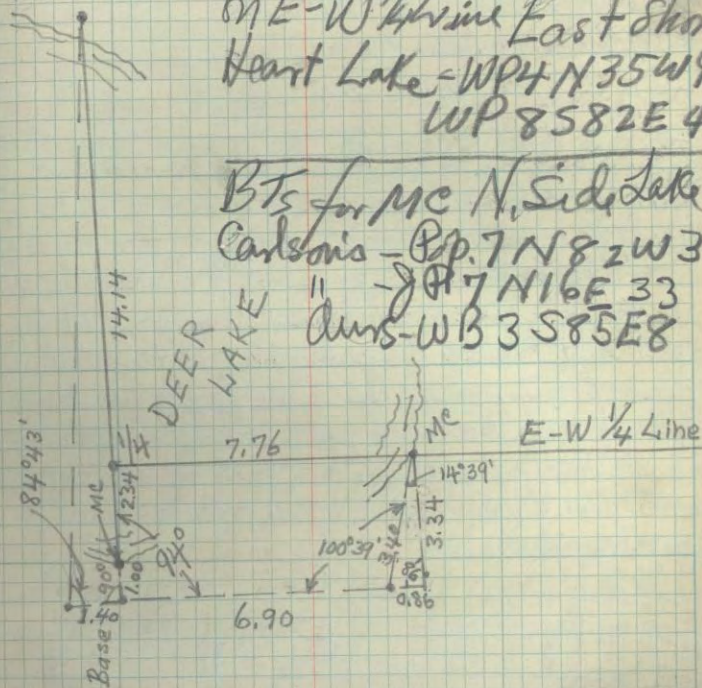 ME-W 1/4 Line East Shor
Heart Lake - WP4N35W9
WP 8S82E 4
BTs for MC N. Side Lake
Carlson's - Pop. 7 N82W3
" - JP 7 N16E 33
Ours - WB 3 S85E8
14.14
DEER
LAKE
84°43'
1/4
7.76
MC
E-W 1/4 Line
14°39'
MC
2.34
3.34
3.40
100°39'
90°
1.00
1.40
6.90
0.86
Base